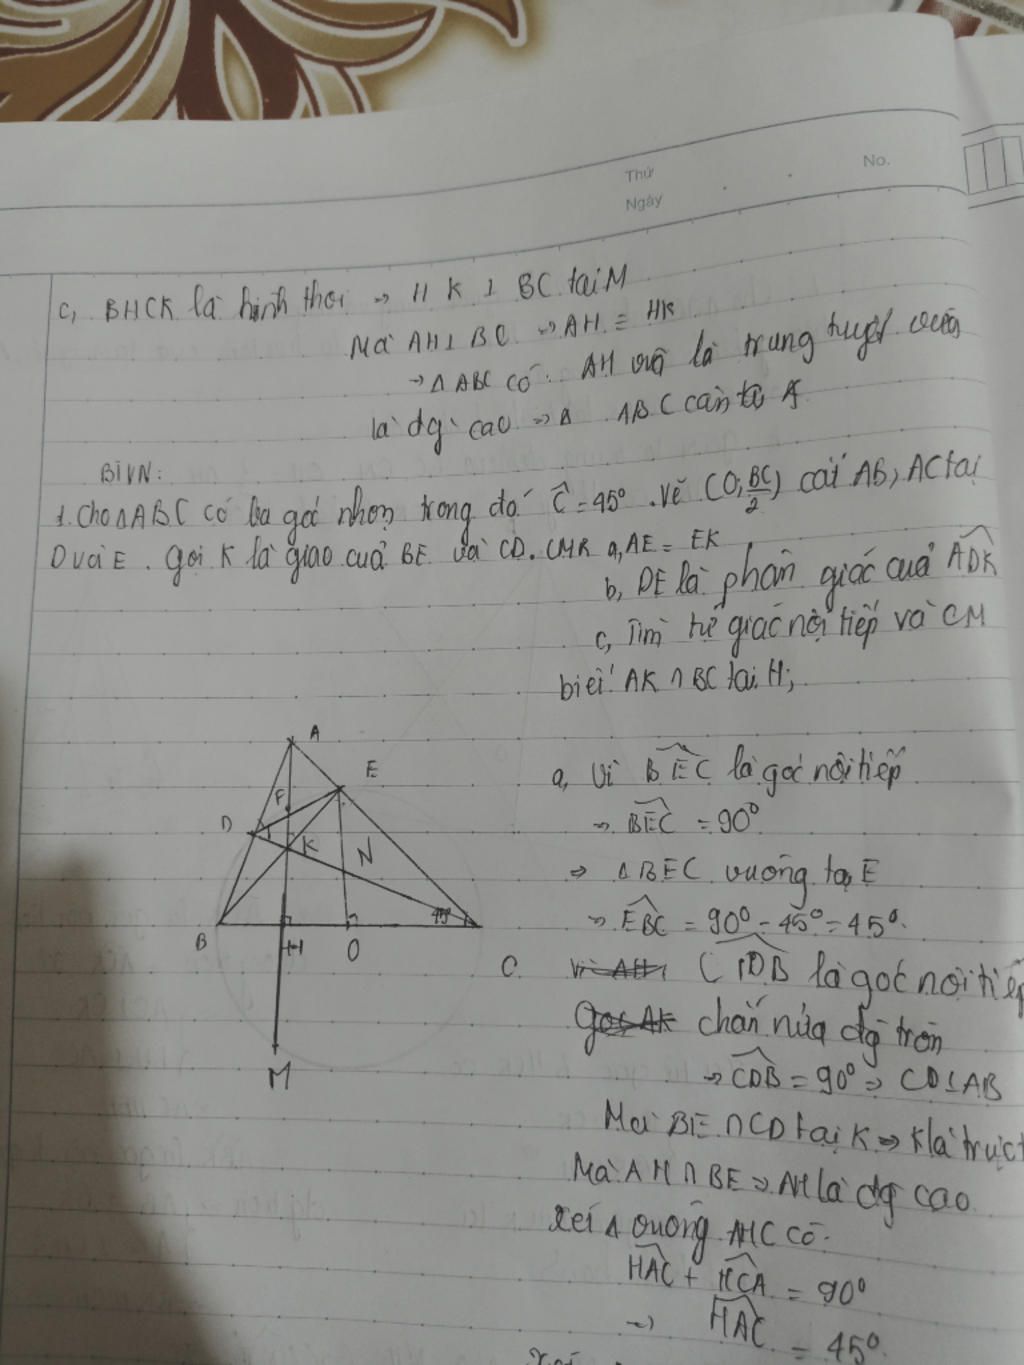 Thứ
No.
Ngày
c, BHCK là hình thoi → HK ⊥ BC tại M
Mà AH ⊥ BC → AH ≡ HK
→ △ABC có AH vừa là trung tuyến vừa
là đg cao → △ ABC cân tại A
BTVN:
1. Cho △ABC có ba góc nhọn trong đó Ĉ = 45°. Vẽ (O; BC/2) cắt AB, AC tại
D và E. Gọi K là giao của BE và CD. CMR a, AE = EK
b, DE là phân giác của ADK
c, Tìm tứ giác nội tiếp và CM
biết AK ∩ BC tại H;
A
E
F
D
K
N
45°
B
H
O
C
M
a, Vì BEC là góc nội tiếp
→ BEC = 90°
⇒ △BEC vuông tại E
→ EBC = 90° - 45° = 45°.
CDB là góc nội tiếp
chắn nửa đg tròn
→ CDB = 90° ⇒ CD ⊥ AB
Mà BE ∩ CD tại K → K là trực
Mà AH ∩ BE ⇒ AH là đg cao
Xét △ vuông AHC có:
HAC + HCA = 90°
→ HAC = 45°.
Xét